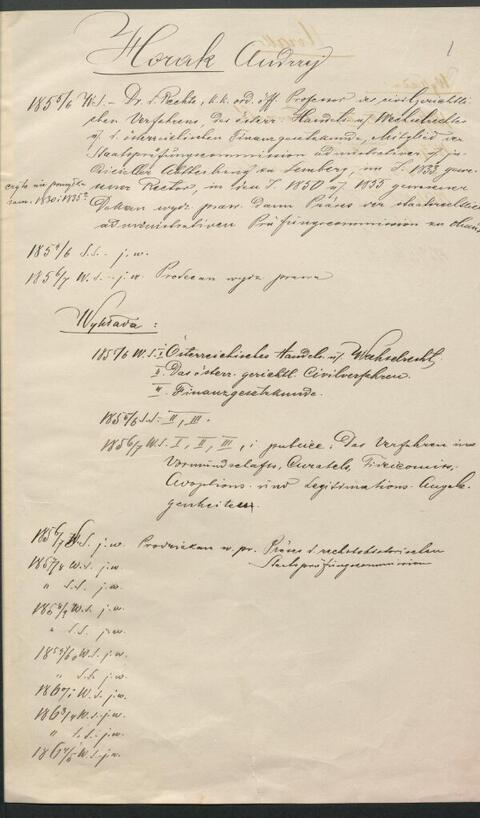 1
Horak Andrzej
1855/6 W.S. – Dr. d. Rechte, k.k. ord. öff. Professor des civilgerichtli-
chen Verfahrens, des österr. Handels u/ Wechselrechtes
u/ d. österreichischen Finanzgesetzkunde, Mitglied der
Staatsprüfungscommission administrativer u/ ju-
dicieller Abtheilung zu Lemberg, im J. 1833 gewe-
sener Rector, in den J. 1850 u/ 1835 gewesener
czyta nie pomyłka
zam. 1830 i 1835?
Dekan wydz. praw. dann Präses der staatsrechtlich
administrativen Prüfungscommission zu
1855/6 S.S. – j.w.
1856/7 W.S. – j.w. Prodecan wydz. prawa
Wykłada:
1855/6 W.S. I Österreichisches Handels u/ Wechselrecht,
II Das österr. gerichtl. Civilverfahren.
III Finanzgesetzkunde.
1855/6 S.S. II, III.
1856/7 W.S. I, II, III, i publice: Das Verfahren in
Vormundschafts, Curatels, Fideicomiss,
Adoptions und Legitimations Angele-
genheiten.
1856/7 S.S. j.w. Prodziekan w. pr. Präses d. rechtshistorischen
Staatsprüfungscommission
1857/8 W.S. j.w.
" S.S. j.w.
1858/9 W.S. j.w.
" S.S. j.w.
1859/60 W.S. j.w.
" S.S. j.w.
W.S. j.w.
1863/4 W.S. j.w.
" S.S. j.w.
1864/5 W.S. j.w.